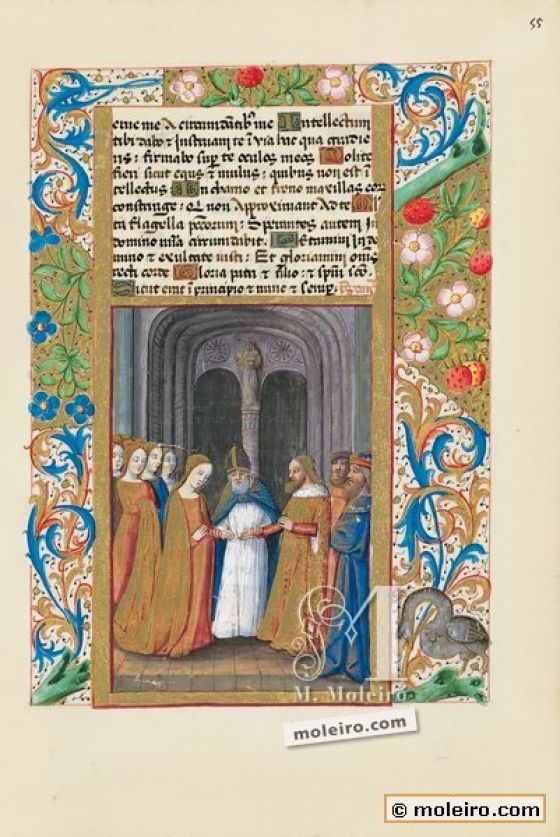 55
erue me A circumdãtibꝰ me Intellectum
tibi dabo & Instruam te ĩ via hac qua gradie
ris: firmabo sup te oculos meos Nolite
fieri sicut equs & mulus: quibus non est ĩ
tellectus In chamo et freno maxillas eor
constringe: Qui non Approximant Ad te Mul
ta flagella peccatorum: Sperantes autem In
domino circumdabit Letamini In do
mino & exultate iusti: Et gloriamini om̃s
recti corde Gloria patri & filio: & spũi sco
Sicut erat ĩ principio & nunc & semper:
M. Moleiro
moleiro.com
© moleiro.com